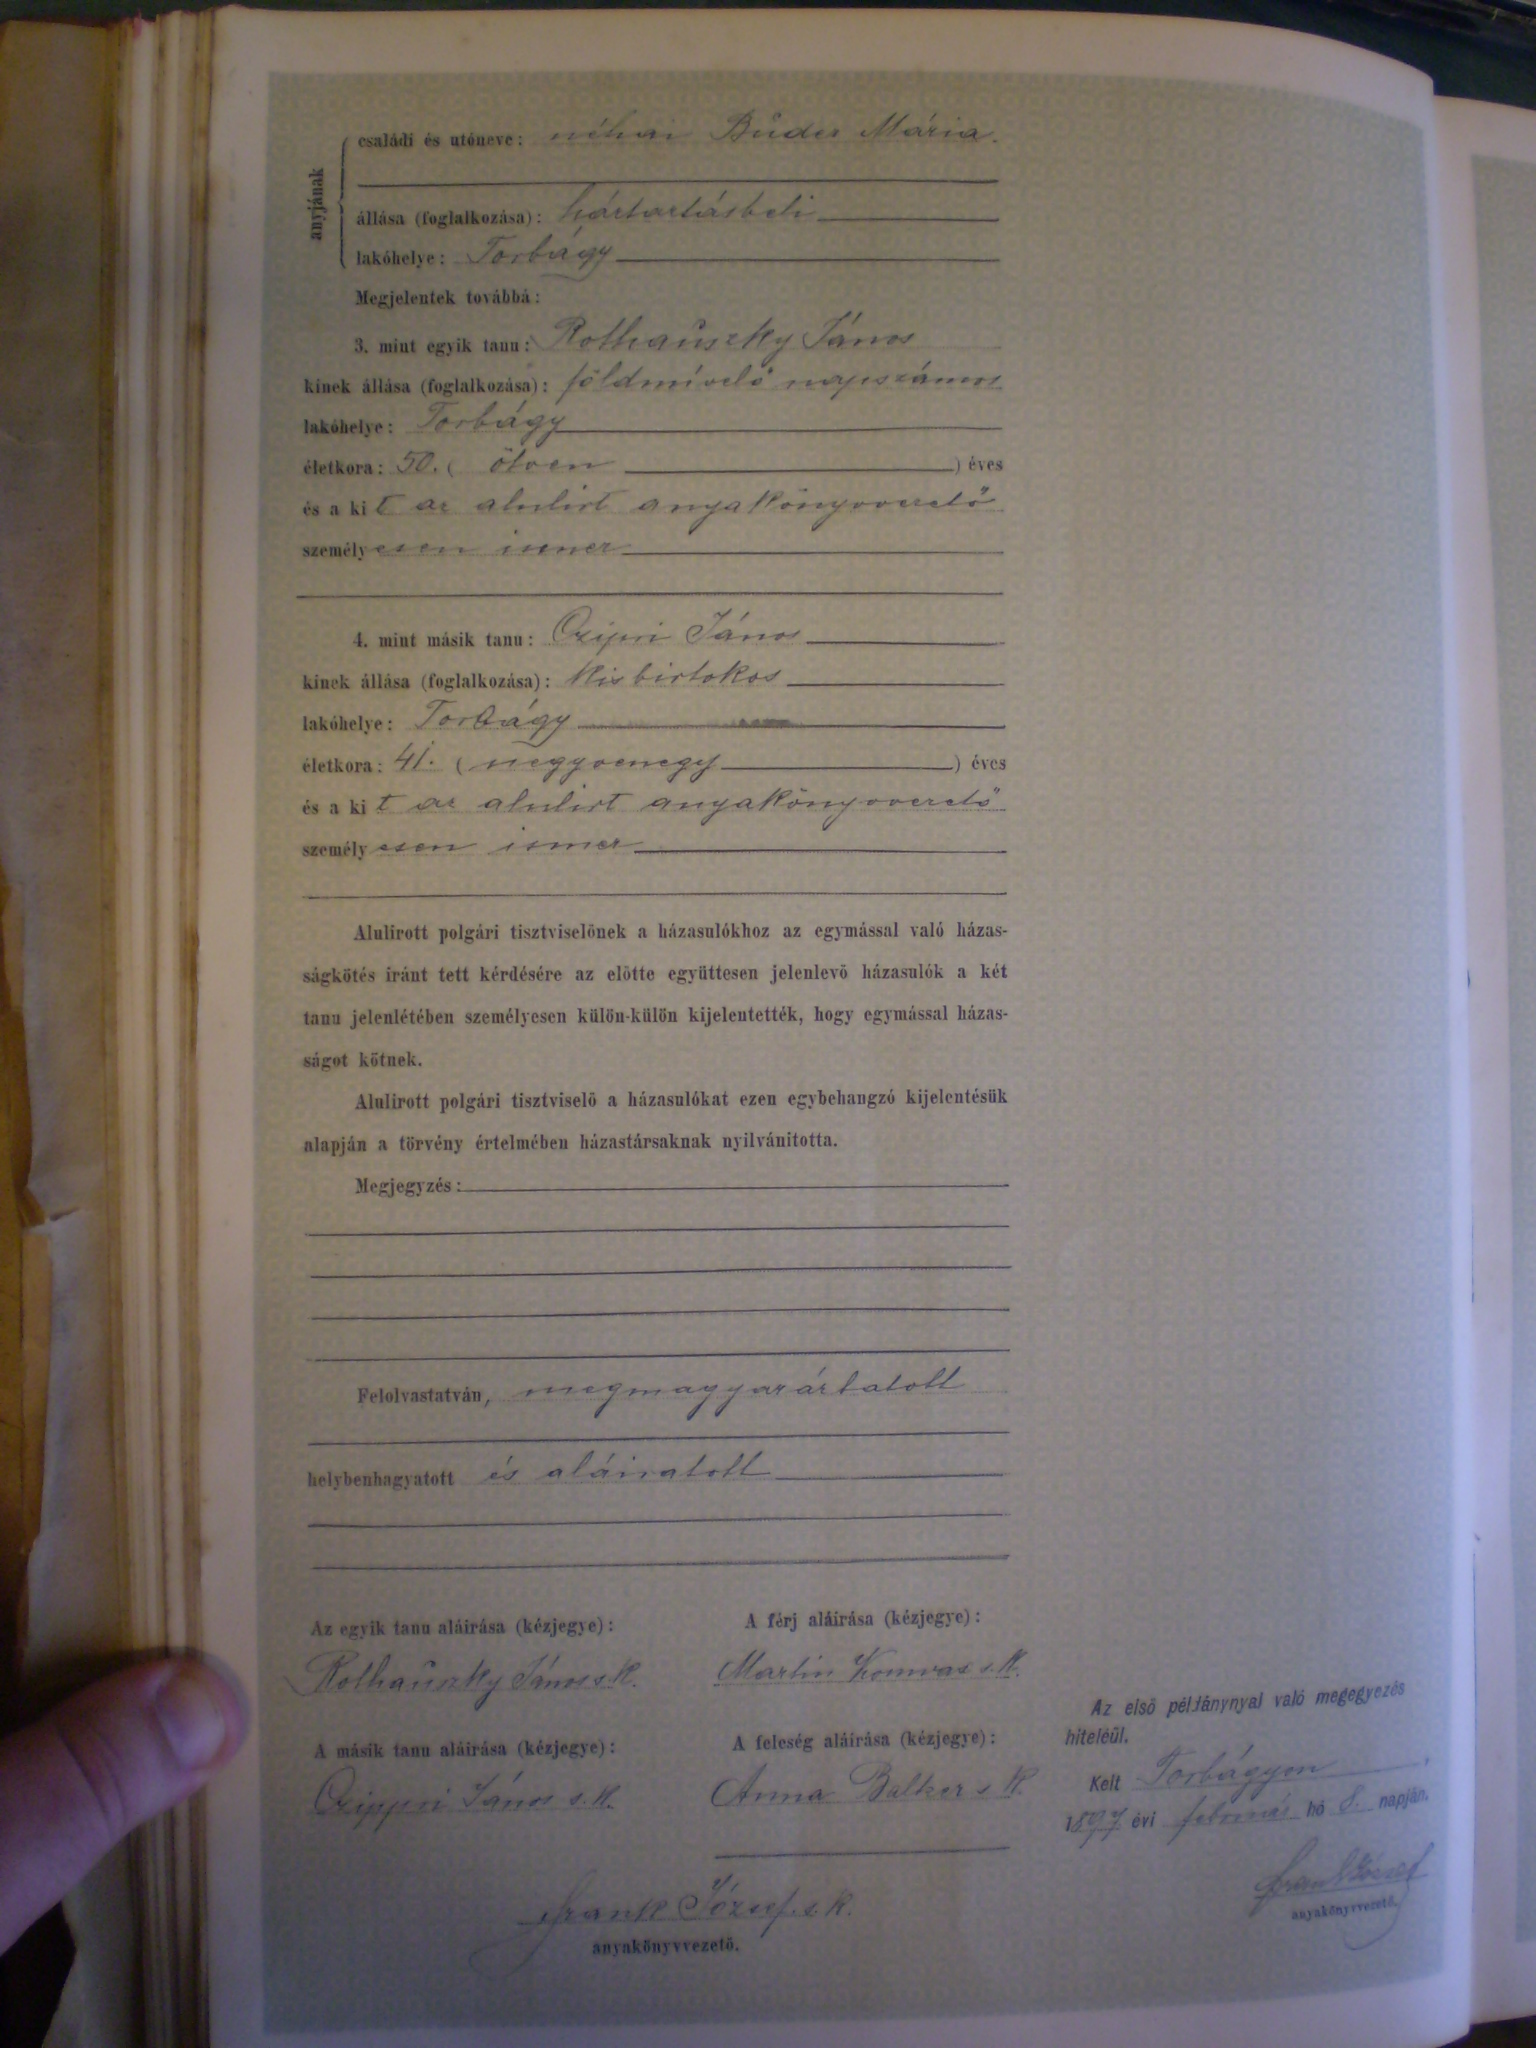 anyjának
családi és utóneve: néhai Büder Mária.
állása (foglalkozása): háztartásbeli
lakóhelye: Torbágy
Megjelentek továbbá:
3. mint egyik tanu: Rothauszky János
kinek állása (foglalkozása): földmívelő napszámos
lakóhelye: Torbágy
életkora: 50. (ötven) éves
és a kit az alulirt anyakönyvvezető
személyesen ismer
4. mint másik tanu: Czipri János
kinek állása (foglalkozása): Kisbirtokos
lakóhelye: Torbágy
életkora: 41. (negyvenegy) éves
és a kit az alulirt anyakönyvvezető
személyesen ismer
Alulirott polgári tisztviselőnek a házasulókhoz az egymással való házas-
ságkötés iránt tett kérdésére az előtte együttesen jelenlevő házasulók a két
tanu jelenlétében személyesen külön-külön kijelentették, hogy egymással házas-
ságot kötnek.
Alulirott polgári tisztviselő a házasulókat ezen egybehangzó kijelentésük
alapján a törvény értelmében házastársaknak nyilvánitotta.
Megjegyzés:
Felolvastatván, megmagyaráztatott
helybenhagyatott és aláiratott
Az egyik tanu aláirása (kézjegye):
Rothauszky János s. k.
A férj aláirása (kézjegye):
Martin s. k.
A másik tanu aláirása (kézjegye):
Czippri János s. k.
A feleség aláirása (kézjegye):
Anna Balker s. k.
Frank József s. k.
anyakönyvvezető.
Az első példánynyal való megegyezés
hiteléül.
Kelt Torbágyon,
1897 évi február hó 8. napján.
Frank József
anyakönyvvezető.